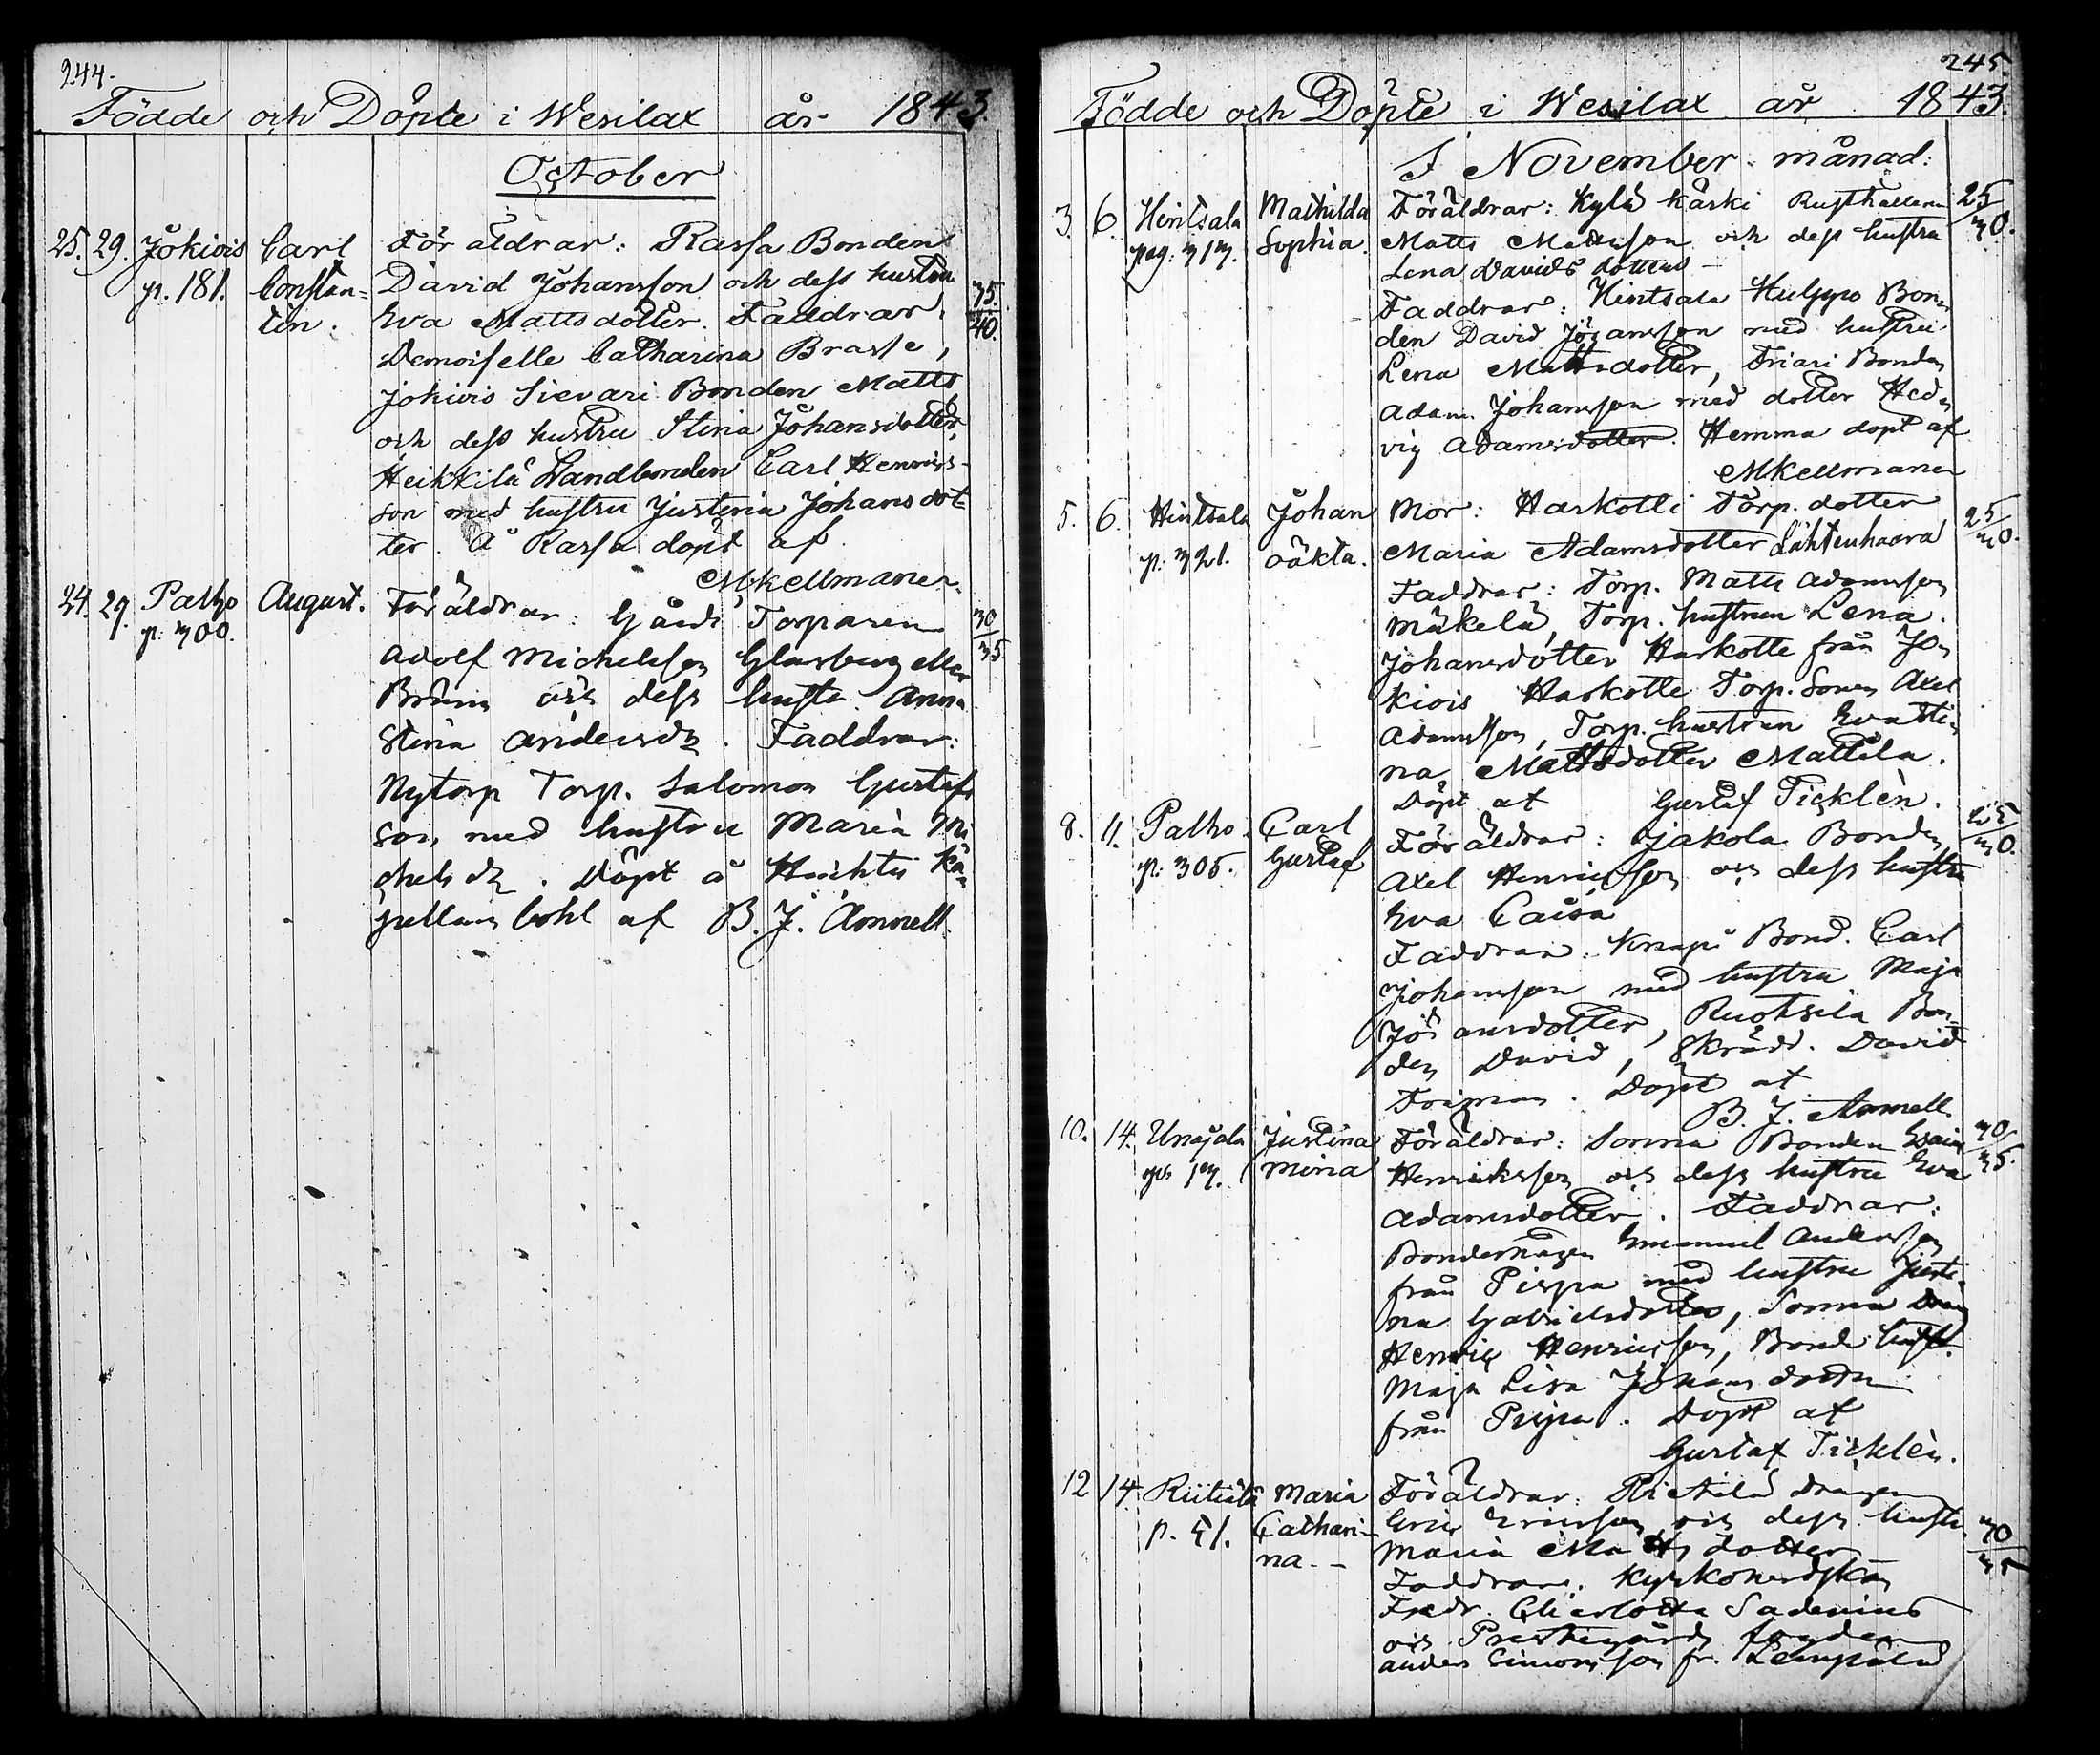 244.
Födde och Döpte i Wesilax år 1843.
October
25. 29. Jokiois Carl Föräldrar: Rassa Bonden
p. 181. Constan= David Johansson och dess hustru 35/40.
tin. Eva Mattsdotter. Faddrar:
Demoiselle Catharina Brasse,
Jokiois Sievari Bonden Matts
och dess hustru Stina Johansdotter,
Heikkilä Landbonden Carl Henrics-
son med hustru Justina Johansdot
ter. Å Rassa döpt af
MKellmaner.
24. 29. Palho August. Föräldrar: Gårds Torparen 30/35
p. 300.
Adolf Michelsson Glasberg eller
Bruun och dess hustr. Anna
Stina Andersdr. Faddrar:
Nytorp Torp. Salomon Gustafs
son med hustru Maria Mi
chelsdr. Döpt å Huchtis
bohl af B. J. Amnell.
245.
Födde och Döpte i Wesilax år 1843.
I November månad:
3. 6. Hintsala Mathilda Föräldrar: Kylä Kaski Rusthållaren 25/30.
pag: 313. Sophia. Matts Mattsson och dess hustru
Lena Davidsdotter
Faddrar: Hintsala Hulppo Bon
den David Johansson med hustru
Lena Mattsdotter, Friari Bonden
Adam Johansson med dotter Hed
vig Adamsdotter. Hemma döpt af
MKellmaner
5. 6. Hintsala Johan Mor: Harkotti Torp. dotter 25/30.
p: 321. oäkta. Maria Adamsdotter Lähtenhaara
Faddrar: Torp. Matts Adamsson
Mäkelä, Torp. hustrun Lena
Johansdotter Harkotte från Jo
kiois Harkotte Torp. Sonen Axel
Adamsson, Torp. hustrun Eva Sti
na Mattsdotter Mattila.
Döpt af Gustaf Ticklèn.
8. 11. Palho Carl Föräldrar: Jakola Bonden 25/30.
p: 305. Gustaf
Axel Henricsson och dess hustru
Eva Caisa
Faddrar: Knapi Bond. Carl
Johansson med hustru Maja
Johansdotter, Ruotsila Bon
den David, Skrädd. David
Friman. Döpt af
B. J. Amnell
10. 14. Unajala Justina Föräldrar: Sonna Bonden Esaias 30/35.
17. Mina Henriksson och dess hustru Eva
Adamsdotter. Faddrar:
Bondemågen Emanuel Andersson
från Pispa med hustru Justi
na Gabrielsdotter, Sonna Dräng
Henric Henricsson, Bonde hustr.
Maja Lisa Johansdotter
från Pispa. Döpt af
Gustaf Ticklèn.
12 14 Riitiala Maria Föräldrar: Drängen
p. 51. Cathari- Eric Ericsson och dess hustr. 30/35
na. - Maria Mattsdotter
Faddrar: Kyrkoherdskan
Fredr. Charlotta Sadenius
och Prestegårds fogden
Anders Simonsson fr. Lempälä